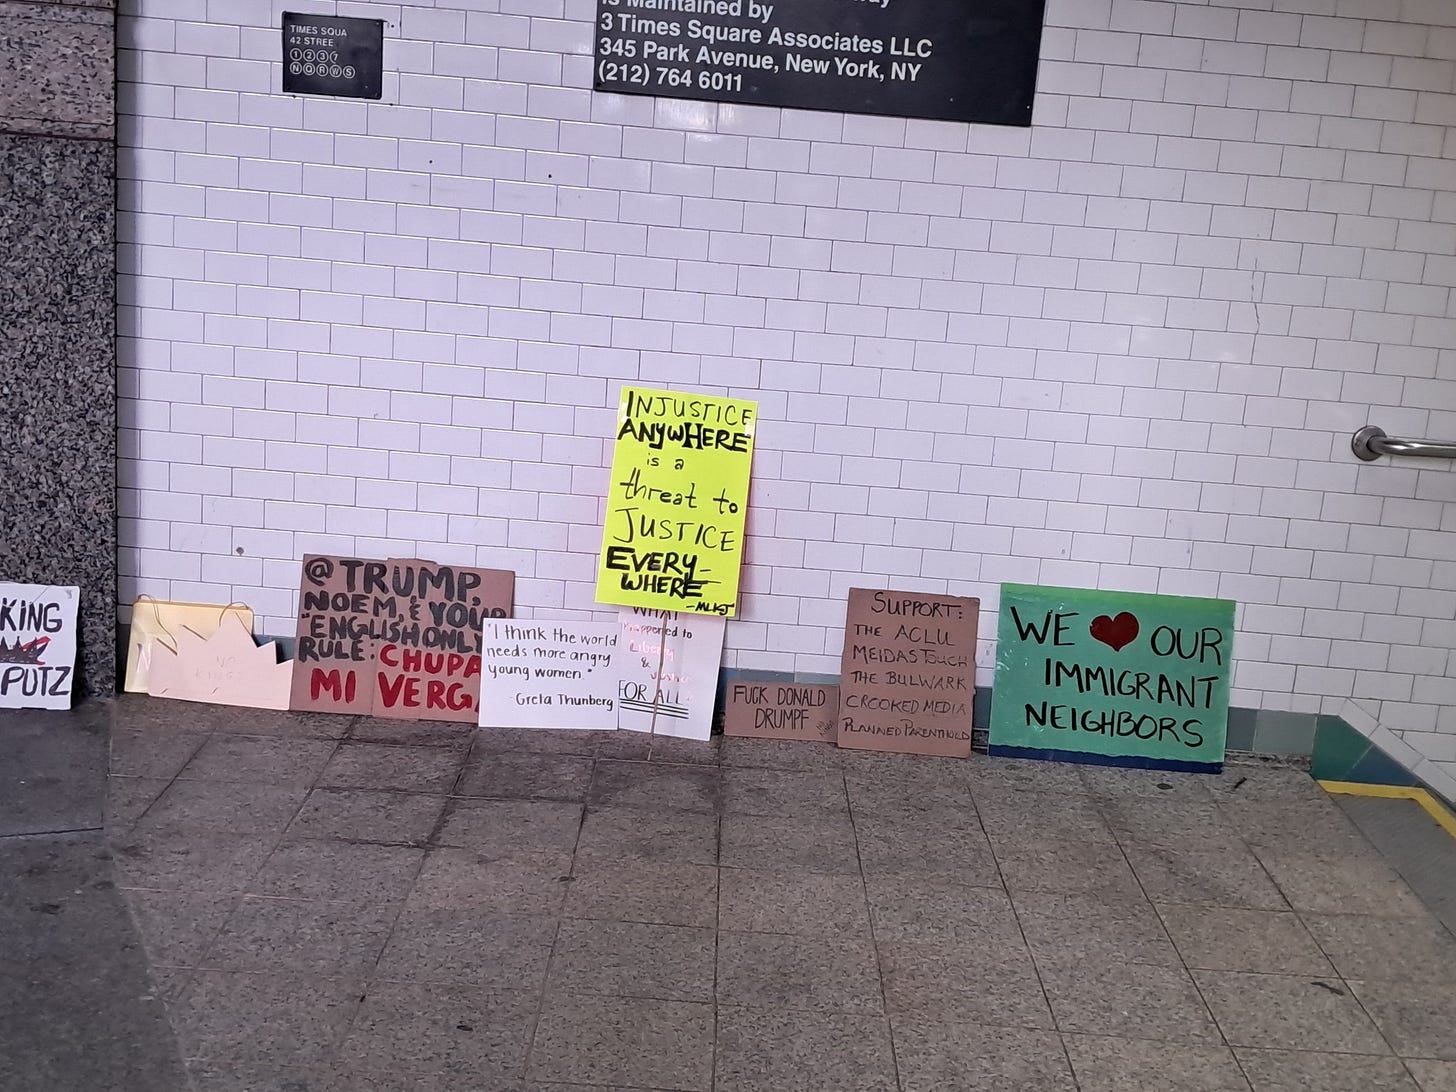 is Maintained by
3 Times Square Associates LLC
345 Park Avenue, New York, NY
(212) 764 6011
TIMES SQUA
42 STREE
1 2 3 7
N Q R W S
KING
PUTZ
NO
KINGS
@TRUMP,
NOEM, & YOUR
"ENGLISH ONLY
RULE: CHUPA
MI VERGA
"I think the world
needs more angry
young women."
-Greta Thunberg
INJUSTICE
ANYWHERE
is a
threat to
JUSTICE
EVERY-
WHERE
-MLKJ
WHAT
Happened to
Liberty
&
Justice
FOR ALL
FUCK DONALD
DRUMPF
SUPPORT:
THE ACLU
MEIDASTOUCH
THE BULWARK
CROOKED MEDIA
PLANNED PARENTHOOD
WE ❤ OUR
IMMIGRANT
NEIGHBORS